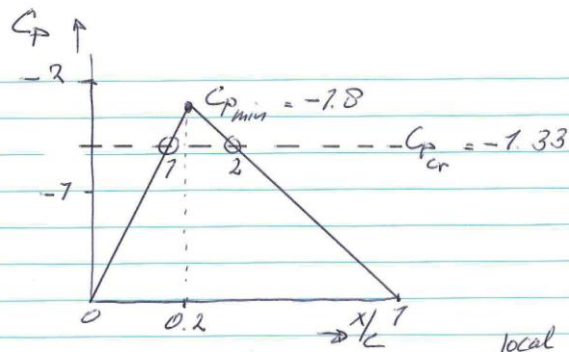 Cp ↑
-2
Cp min = -1.8
Cp cr = -1.33
1 2
-1
0 0.2 → x/c 1
local